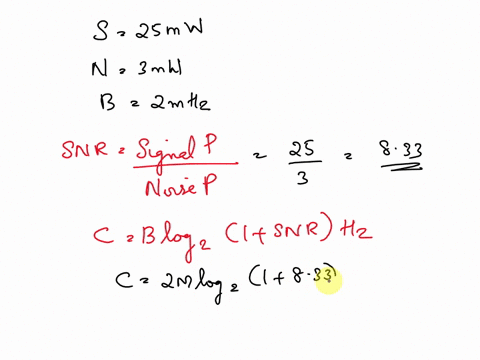 S = 25mW
N = 3mW
B = 2mHz
SNR = Signal P / Noise P = 25 / 3 = 8.33
C = B log₂ (1 + SNR) Hz
C = 2M log₂ (1 + 8.33)